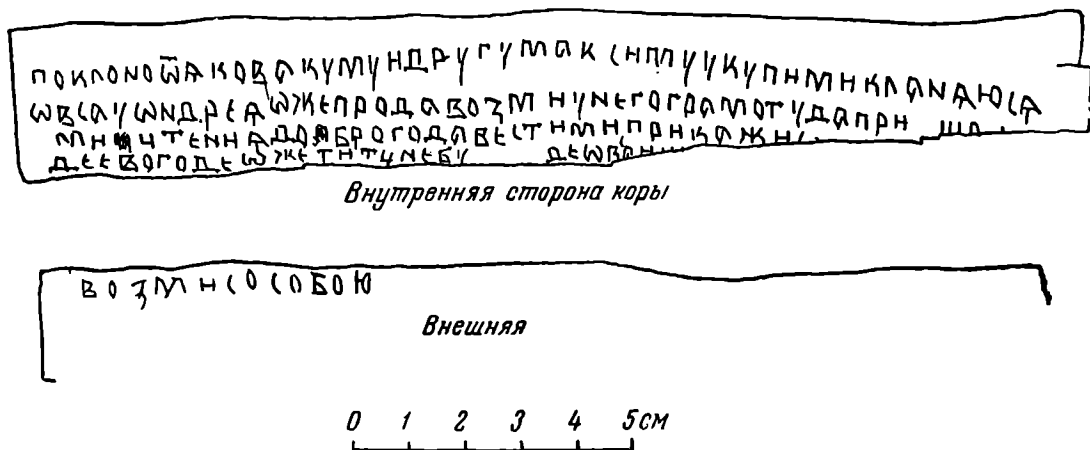 поклоноѿѧковакумуидругумаксимуукупимикланѧюсѧ
ѡвсауѡндреѧѡжепродавозмиунегограмотудапри шл
ми чтениѧдоброгодавестимиприкажи
деевогодеѡжетитцнебу деѡв
Внутренняя сторона коры
возмисособою
Внешняя
0 1 2 3 4 5см